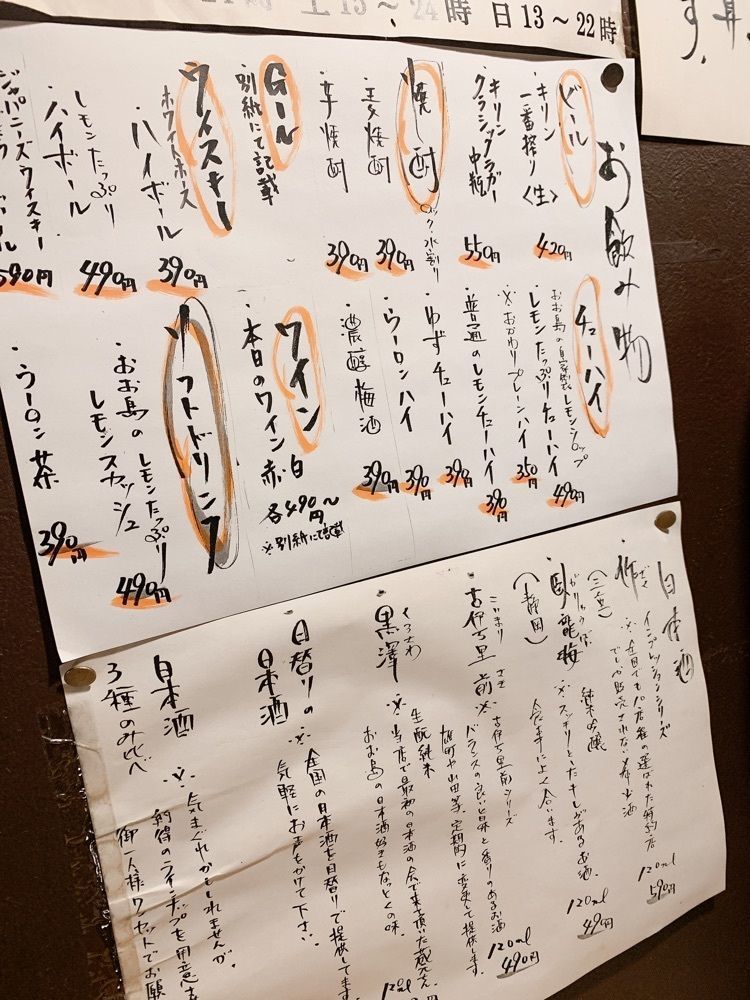 土13～24時 日13～22時
す、
お飲み物
ビール
・キリン
一番搾り
〈生〉
420円
・キリン
クラシックラガー
中瓶
550円
焼酎
ロック・水割り
・麦焼酎
390円
・芋焼酎
390円
Gール
・別紙にて記載
ウィスキー
ホワイトホース
・ハイボール
390円
レモンたっぷり
・ハイボール
490円
ジャパニーズウィスキー
590円
チューハイ
おお島の自家製レモンシロップ
・レモンたっぷりチューハイ
490円
※おかわりプレーンハイ
350円
・普通のレモンチューハイ
390円
・ゆずチューハイ
390円
・ウーロンハイ
390円
・濃醇梅酒
390円
ワイン
・本日のワイン 赤・白
各490円～
※別紙にて記載
ソフトドリンク
・おお島のレモンたっぷり
レモンスカッシュ
490円
・ウーロン茶
390円
日本酒
作
ざく
(三重)
インプレッションシリーズ
※全国でも
店程の選ばれた特約店
でしか販売されない希少酒
120ml
590円
臥龍梅
がりゅうばい
(静岡)
純米吟醸
※スッキリといたキレがあるお酒。
食事によく合います。
120ml
490円
古伊万里 前
こいまり さき
※古伊万里前シリーズ
バランスの良い旨味と香りのあるお酒
雄町や山田等、定期的に変更して提供します。
120ml
490円
黒澤
くろさわ
生酛純米
※当店で最初の日本酒の会で来て頂いた蔵元さん。
おお島の日本酒好きもなっとくの味。
日替りの
日本酒
※全国の日本酒を日替りで提供してます。
気軽にお声をかけて下さい。
日本酒
3種のみ比べ
※気まぐれかもしれませんが、
納得のラインナップを用意
御一人様ワンセットでお願